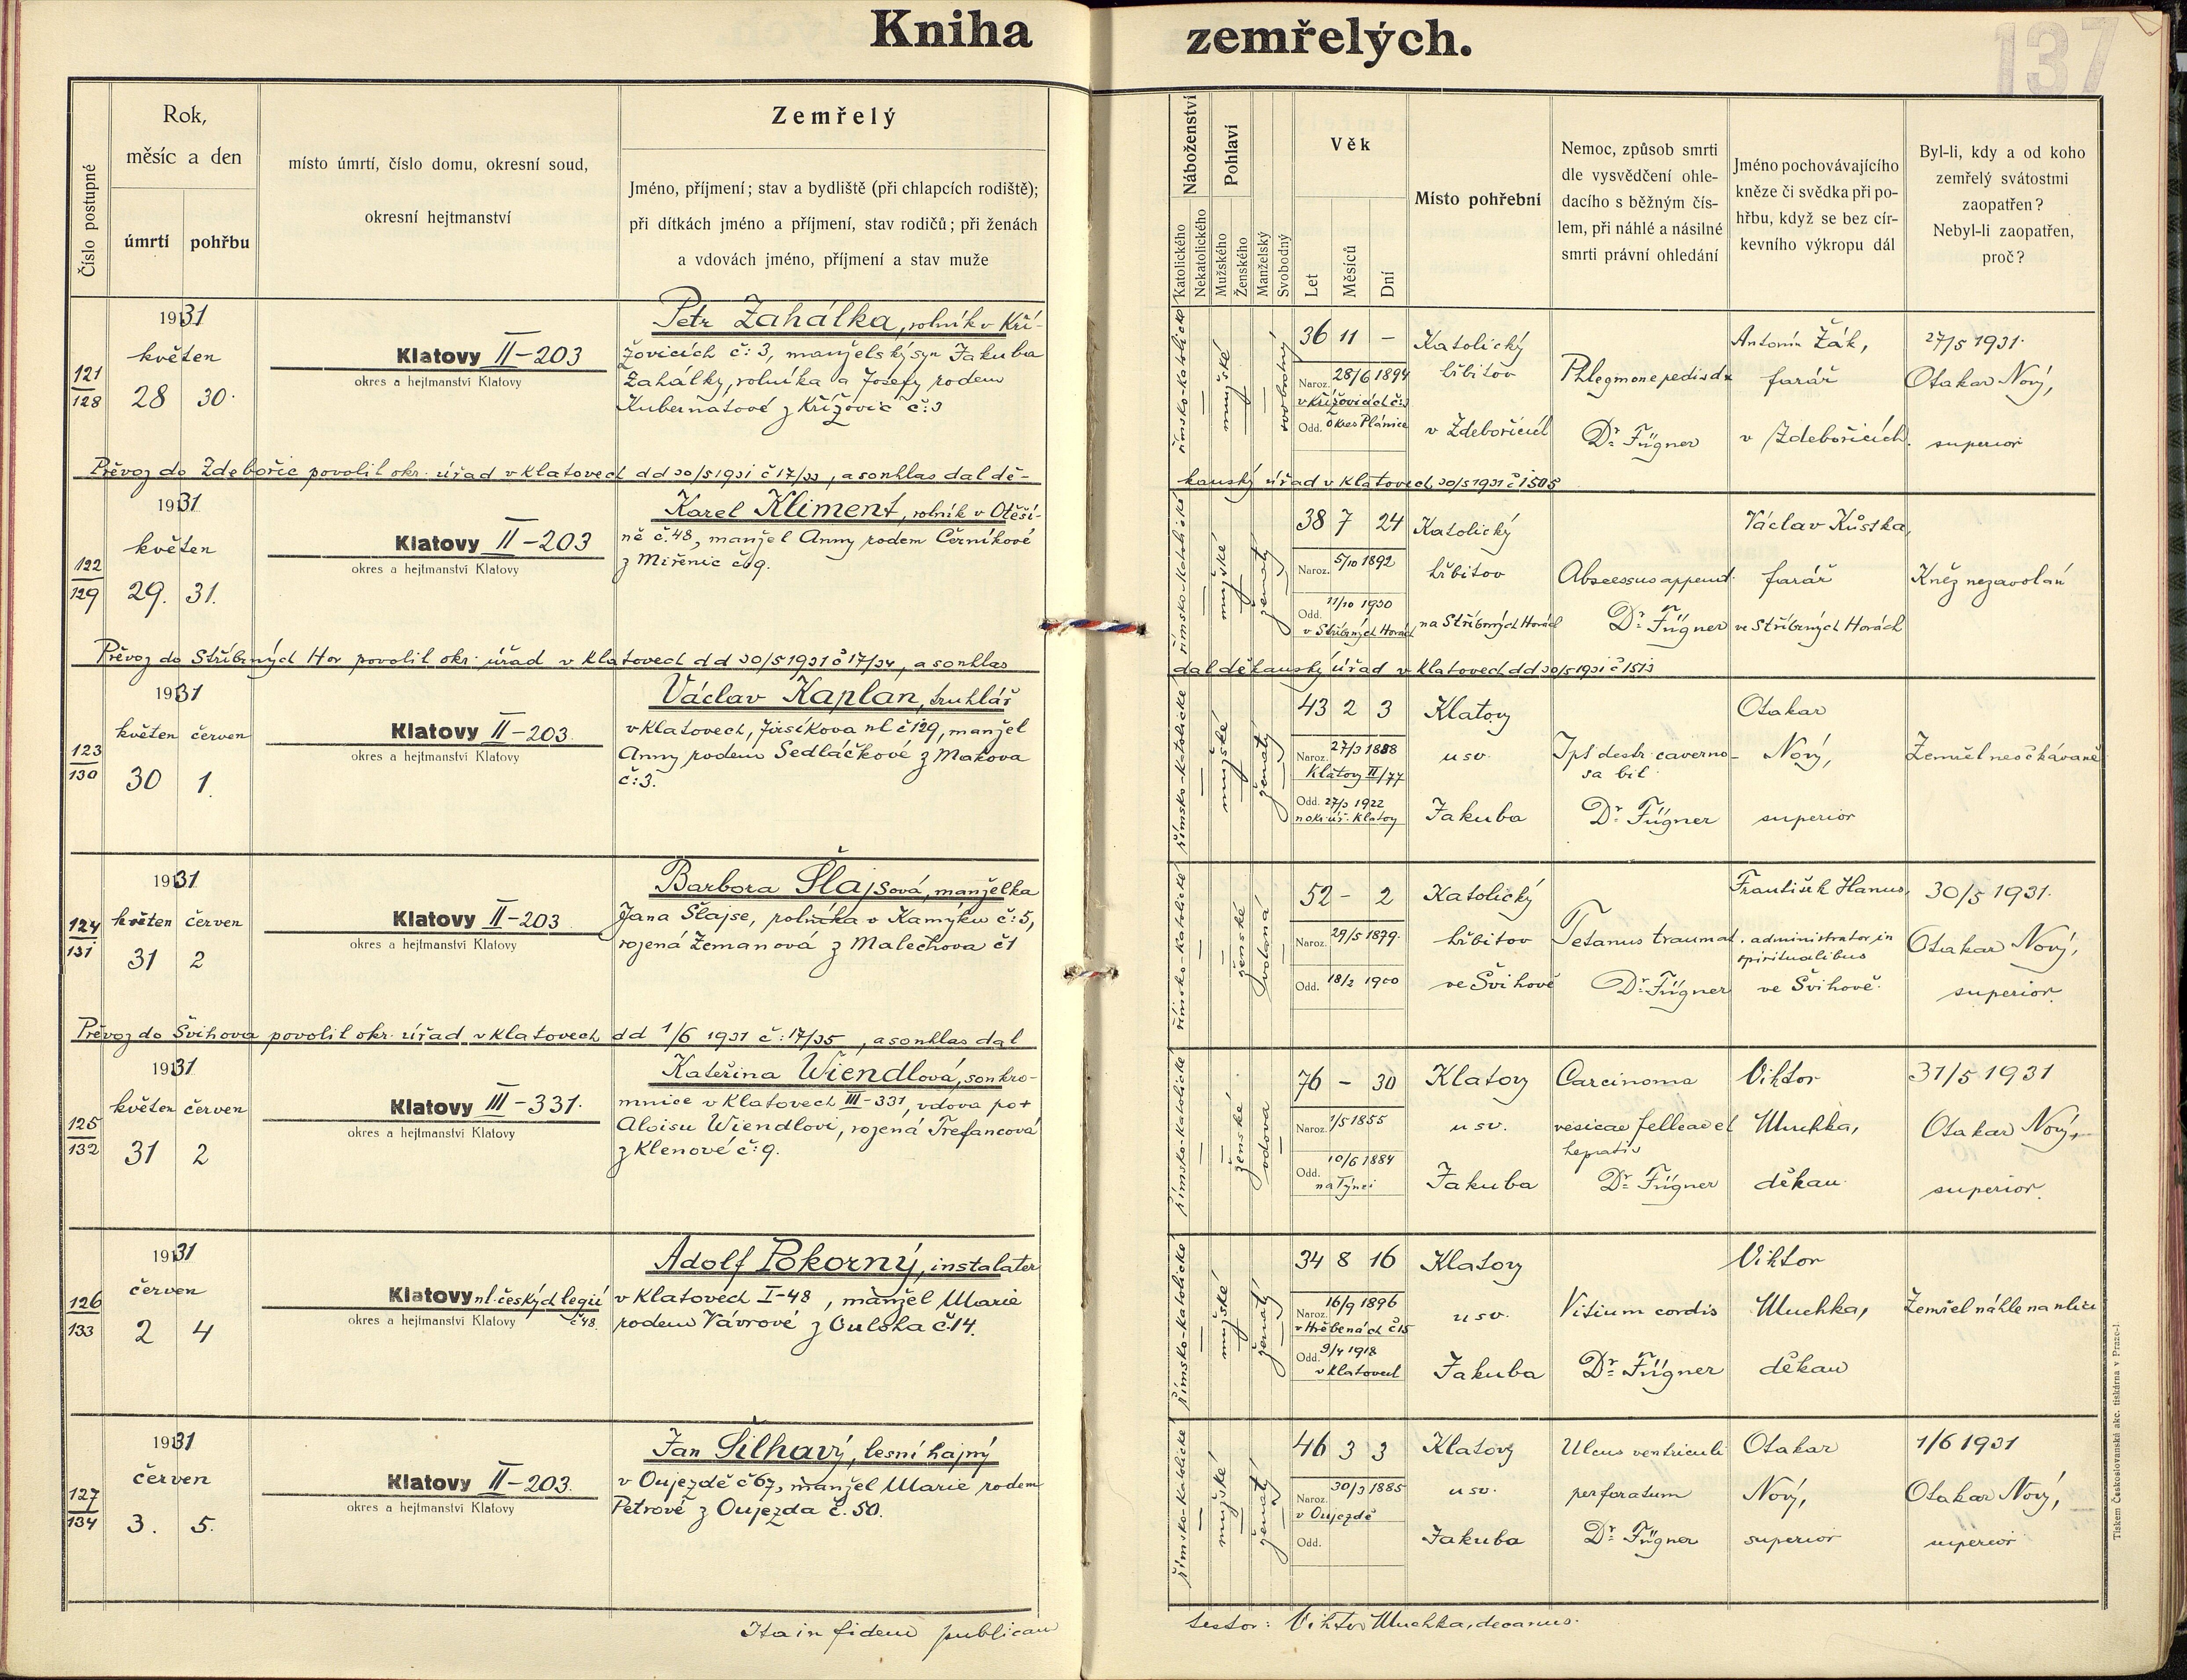 Kniha zemřelých.
137
Číslo postupné
Rok,
měsíc a den
úmrtí
pohřbu
místo úmrtí, číslo domu, okresní soud,
okresní hejtmanství
Zemřelý
Jméno, příjmení; stav a bydliště (při chlapcích rodiště);
při dítkách jméno a příjmení, stav rodičů; při ženách
a vdovách jméno, příjmení a stav muže
Náboženství
Katolického
Nekatolického
Pohlaví
Mužského
Ženského
Manželský
Svobodný
Věk
Let
Měsíců
Dní
Místo pohřební
Nemoc, způsob smrti
dle vysvědčení ohle-
dacího s běžným čís-
lem, při náhlé a násilné
smrti právní ohledání
Jméno pochovávajícího
kněze či svědka při po-
hřbu, když se bez cír-
kevního výkropu dál
Byl-li, kdy a od koho
zemřelý svátostmi
zaopatřen?
Nebyl-li zaopatřen,
proč?
121
128
1931
květen
28 30.
Klatovy II-203
okres a hejtmanství Klatovy
Petr Zahálka, rolník v Kří-
žovicích č: 3, manželský syn Jakuba
Zahálky, rolníka a Josefy rodem
Kubernátové z Křížovic č:3
římsko-katolické
mužské
svobodný
36 11 -
Naroz. 28/6 1894
v Křížovicích č:3
Odd. Okres Plánice
Katolický
hřbitov
v Zdebořicích
Phlegmone pedis dx
Dr. Fügner
Antonín Žák,
farář
v Zdebořicích.
27/5 1931.
Otakar Nový,
superior
Převoz do Zdebořic povolil okr. úřad v Klatovech dd 30/5 1931 č 17/33, a souhlas dal dě-
kanský úřad v Klatovech 30/5 1931 č 1505
122
129
1931
květen
29. 31.
Klatovy II-203
okres a hejtmanství Klatovy
Karel Kliment, rolník v Otěší-
ně č. 48, manžel Anny rodem Černíkové
z Miřenic č. 9.
římsko-katolické
mužské
ženatý
38 7 24
Naroz. 5/10 1892
Odd. 11/10 1930
v Stříbrných Horách
Katolický
hřbitov
na Stříbrných Horách
Abscessus append.
Dr. Fügner
Václav Kůstka,
farář
ve Stříbrných Horách
Kněz nezavolán
Převoz do Stříbrných Hor povolil okr. úřad v Klatovech dd 30/5 1931 č 17/34, a souhlas
dal děkanský úřad v Klatovech dd 30/5 1931 č 1513
123
130
1931
květen červen
30 1.
Klatovy II-203.
okres a hejtmanství Klatovy
Václav Kaplan, truhlář
v Klatovech, Jirsíkova ul č 129, manžel
Anny rodem Sedláčkové z Makova
č:3.
římsko-katolické
mužské
ženatý
43 2 3
Naroz. 27/3 1888
Klatovy II/77
Odd. 27/3 1922
u okr. úř. Klatovy
Klatovy
u sv.
Jakuba
Tpt destr. caverno-
sa bil
Dr. Fügner
Otakar
Nový,
superior
Zemřel neočekávaně
124
131
1931
květen červen
31 2
Klatovy II-203
okres a hejtmanství Klatovy
Barbora Šlajsová, manželka
Jana Šlajse, rolníka v Kamýku č:5,
rozená Zemanová z Malechova č 1
římsko-katolické
ženské
52 - 2
Naroz. 29/5 1879.
Odd. 18/2 1900
Katolický
hřbitov
ve Švihově
Tetanus traumat.
Dr. Fügner
František Hanus,
administrator in
spiritualibus
ve Švihově.
30/5 1931.
Otakar Nový,
superior.
Převoz do Švihova povolil okr. úřad v Klatovech dd 1/6 1931 č: 17/35, a souhlas dal
125
132
1931
květen červen
31 2
Klatovy III-331.
okres a hejtmanství Klatovy
Kateřina Wiendlová, soukro-
mnice v Klatovech III-331, vdova po +
Aloisu Wiendlovi, rozená Trefancová
z Klenové č:9.
římsko-katolické
ženské
vdova
76 - 30
Naroz. 1/5 1855
Odd. 10/6 1884
na Týnci
Klatovy
u sv.
Jakuba
Carcinoma
vesicae felleae et
hepatis
Dr. Fügner
Viktor
Muchka,
děkan.
31/5 1931
Otakar Nový,
superior.
126
133
1931
červen
2 4
Klatovy ul. českých legií
č 48.
okres a hejtmanství Klatovy
Adolf Pokorný, instalater
v Klatovech I-48, manžel Marie
rodem Vávrové z Oulska č.14.
římsko-katolické
mužské
ženatý
34 8 16
Naroz. 16/9 1896
v Hřebenách č 15
Odd. 9/4 1918
v Klatovech
Klatovy
u sv.
Jakuba
Vitium cordis
Dr. Fügner
Viktor
Muchka,
děkan
Zemřel náhle na ulici
127
134
1931
červen
3. 5.
Klatovy II-203.
okres a hejtmanství Klatovy
Jan Šilhavý, lesní hajný
v Oujezdě č 67, manžel Marie rodem
Petrové z Oujezda č. 50.
římsko-katolické
mužské
ženatý
46 3 3
Naroz. 30/3 1885
v Oujezdě
Odd.
Klatovy
u sv.
Jakuba
Ulcus ventriculi
perforatum
Dr. Fügner
Otakar
Nový,
superior
1/6 1931
Otakar Nový,
superior
Ita in fidem publicam
testor: Viktor Muchka, decanus.
Tiskem Českoslovanská akc. tiskárna v Praze-I.